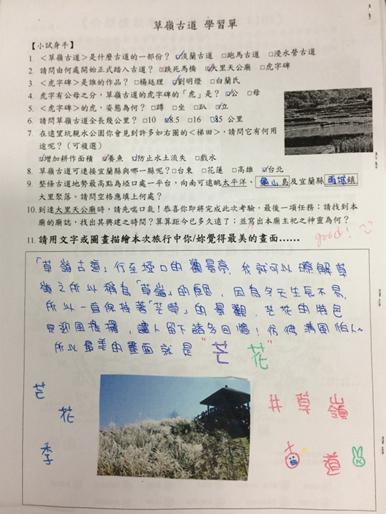 草嶺古道 學習單
【小試身手】
1 <草嶺古道>是什麼古道的一部份? ☑淡蘭古道 □跑馬古道 □浸水營古道
2 請問由何處開始正式踏入古道? ☑跌死馬橋 □大里天公廟
3 <虎字碑>是誰的作品? □楊廷理 ☑劉明燈 □白蘭氏
4 虎字有公母之分,草嶺古道的虎字碑的「虎」是? □公 □母
5 <虎字碑>的虎,姿態為何?
6 請問草嶺古道全長幾公里? □10 ☑8.5 □16 □85 公里
7 在遠望坑親水公園你會見到許多如右圖的<梯田>,請問它有何用
途呢?(可複選)
☑增加耕作面積 ☑養魚 ☑防止水土流失 □戲水
8 草嶺古道可連接宜蘭縣與哪一縣呢? □台東 □花蓮 □高雄 ☑台北
9 整條古道地勢最高點為埡口處一平台,向南可遠眺太平洋、龜山島及宜蘭縣頭城鎮
大里聚落,請問空格應填上何處?
10 到達大里天公廟時,請先喘口氣!恭喜你即將完成此次考驗,最後一項任務:請找到本
廟的廟誌,找出其興建之時間?算算距今已多久遠了;並寫出本廟主祀之神靈為何?
good!
11 請用文字或圖畫描繪本次旅行中你/妳覺得最美的畫面......
「草嶺古道」行至埡口的觀景亭,你就可以瞭解草
嶺之所以稱為「草嶺」的原因,因為冬天生長不易,
所以一直保持著「芒草」的景觀,芒花的特色
所以最美的畫面就是"芒花"
芒花季
井草嶺
古道